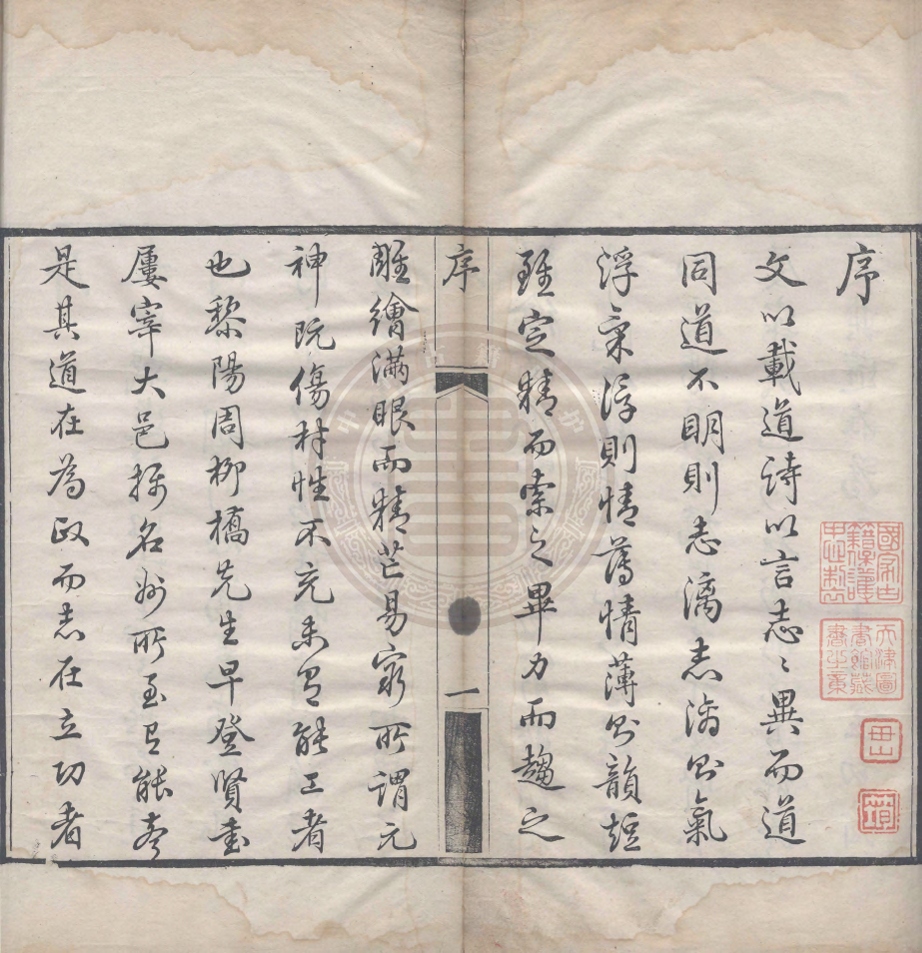 序
文以載道詩以言志志異而道
同道不明則志漓志漓則氣
浮氣浮則情薄情薄則韻短
雖定精而索之畢力而趨之
序
一
雕繪滿眼而精芒易窮所謂元
神既傷材性不充未有能工者
也黎陽周柳橋先生早登賢書
屢宰大邑擢名州所至有能聲
是其道在為政而志在立功者
國家古籍業護中心
天津圖書館藏書之章